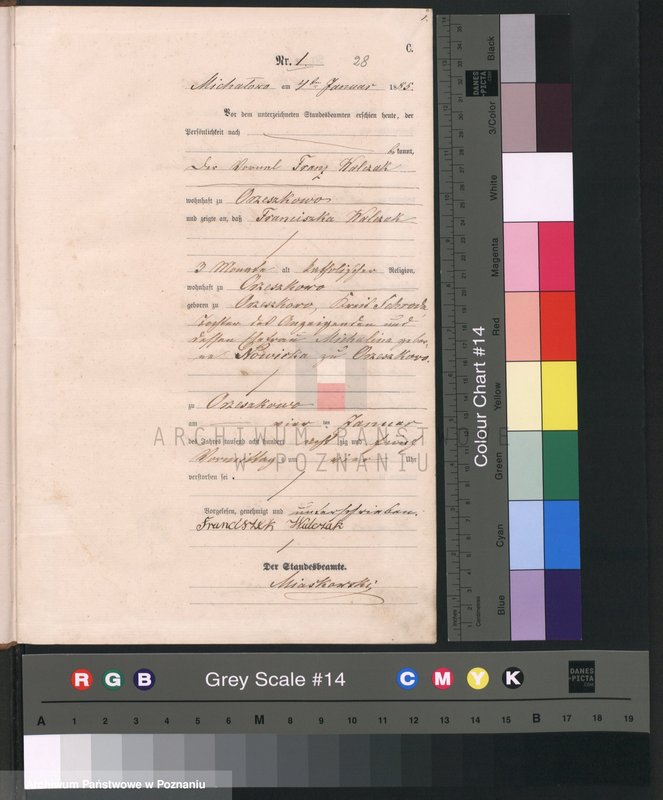 1.
C.
Nr. 1. 28
Michalowo am 4ten Januar 1885.
Vor dem unterzeichneten Standesbeamten erschien heute, der
Persönlichkeit nach
bekannt,
Der Vornal Franz Walczak
wohnhaft zu Orzeszkowo
und zeigte an, daß Franciszka Walczak
3 Monate alt katholischer Religion,
wohnhaft zu Orzeszkowo
geboren zu Orzeszkowo, Kreis Schroda
Tochter des Anzeigenden und
dessen Ehefrau Michalina gebor-
ne Nowicka zu Orzeszkowo.
zu Orzeszkowo
am vier ten Januar
des Jahres tausend acht hundert acht zig und fünf
Vormittags um vier Uhr
verstorben sei.
Vorgelesen, genehmigt und unterschrieben.
Franciszek Walczak
Der Standesbeamte.
Miaskowski
ARCHIWUM PAŃSTWOWE
W POZNANIU
Colour Chart #14
Black
3/Color
White
Magenta
Red
Yellow
Green
Cyan
Blue
DANES
-PICTA
.COM
Inches
Centimetres
R G B Grey Scale #14 C M Y K
DANES
-PICTA
.COM
A 1 2 3 4 5 6 M 8 9 10 11 12 13 14 15 B 17 18 19
Archiwum Państwowe w Poznaniu